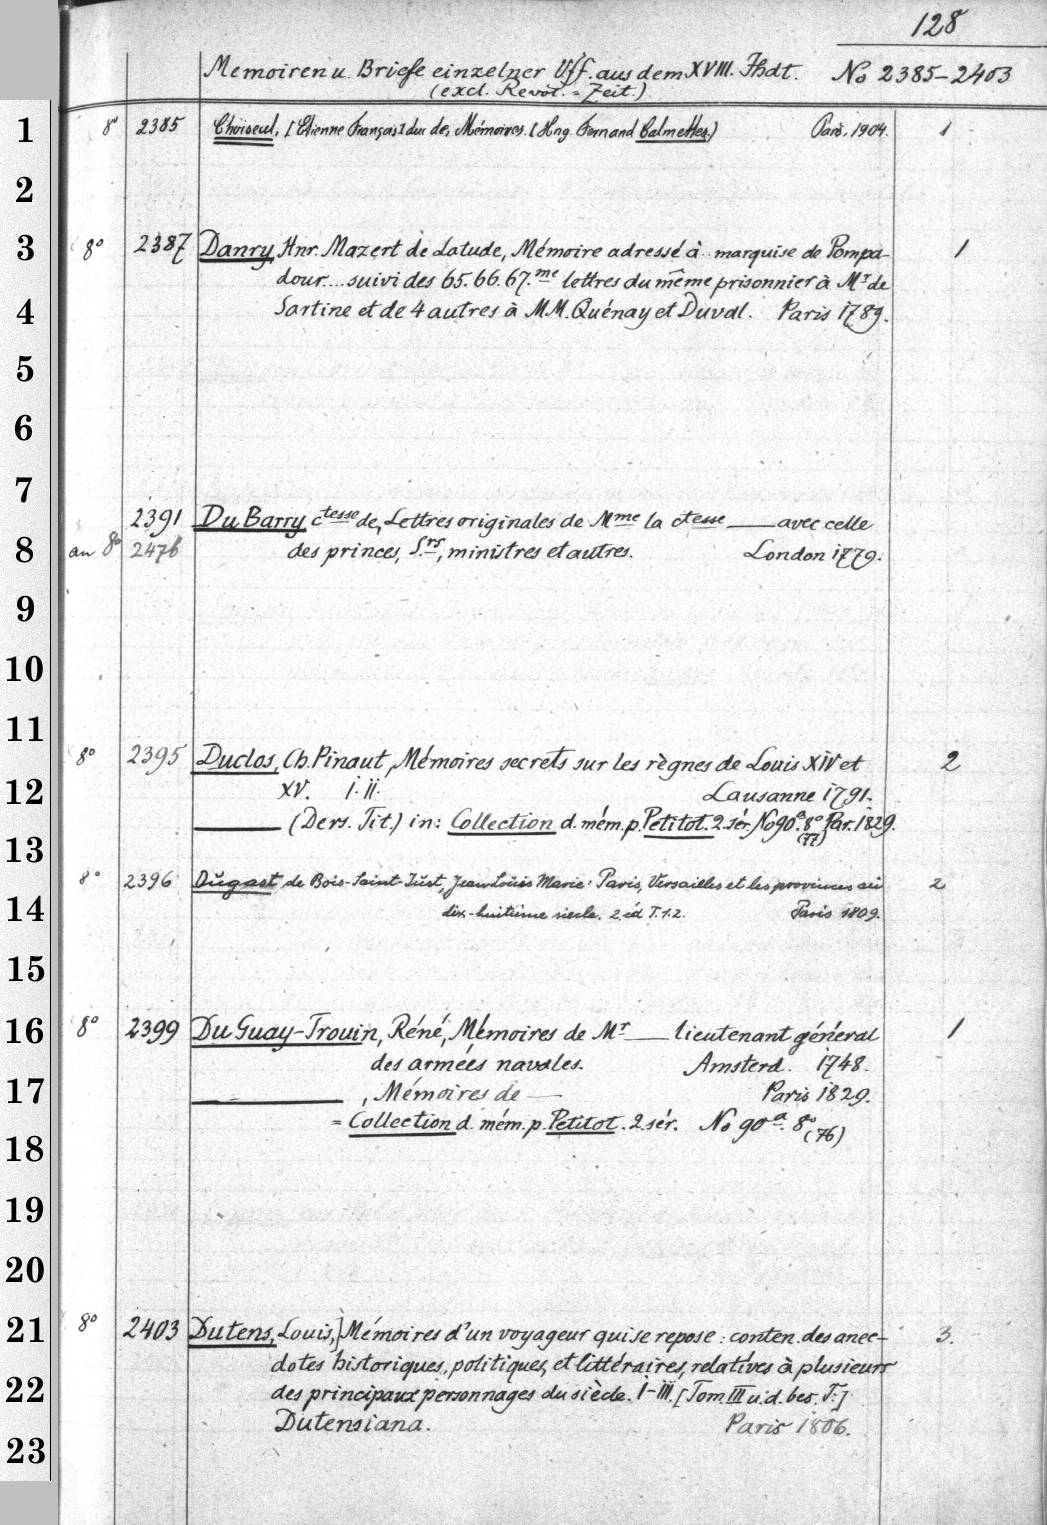 128
Memoiren u. Briefe einzelner Vff. aus dem XVIII. Jhdt. No 2385-2403
(excl. Revol.-Zeit.)
1 8° 2385 Choiseul, [Etienne François] duc de, Mémoires. [Hng. Fernand Calmettes.] Paris. 1904. 1
2
3 8° 2387 Danry, Hnr. Mazert de Latude, Mémoire adressé à .. marquise de Pompa-
dour.... suivi des 65. 66. 67.me lettres du même prisonnier à Mr de
4 Sartine et de 4 autres à MM. Quénay et Duval. Paris 1789.
5
6
7
2391 Du Barry, ctesse de, Lettres originales de Mme la ctesse —— avec celle
8 an 8° 2476 des princes, Srs, ministres et autres. London 1779.
9
10
11
8° 2395 Duclos, Ch. Pinaut, Mémoires secrets sur les règnes de Louis XIV et 2
12 XV. I. II. Lausanne 1791.
—— (Ders. Tit.) in: Collection d. mém. p. Petitot. 2. sér. No 90a. 8° Par. 1829.
13 (77)
8° 2396 Dugast de Bois-Saint-Just, Jean Louis Marie: Paris, Versailles et les provinces au 2
14 dix-huitième siecle. 2. éd T. 1. 2. Paris 1809.
15
16 8° 2399 Du Guay-Trouin, Réné, Mémoires de Mr —— lieutenant géneral 1
des armées navales. Amsterd. 1748.
17 ——, Mémoires de — Paris 1829.
= Collection d. mém. p. Petitot. 2. sér. No 90a. 8° (76)
18
19
20
21 8° 2403 Dutens, Louis,] Mémoires d'un voyageur qui se repose: conten. des anec- 3.
dotes historiques, politiques, et littéraires, relatives à plusieurs
22 des principaux personnages du siècle. I-III. [Tom. III u. d. bes. T:]
Dutensiana. Paris 1806.
23